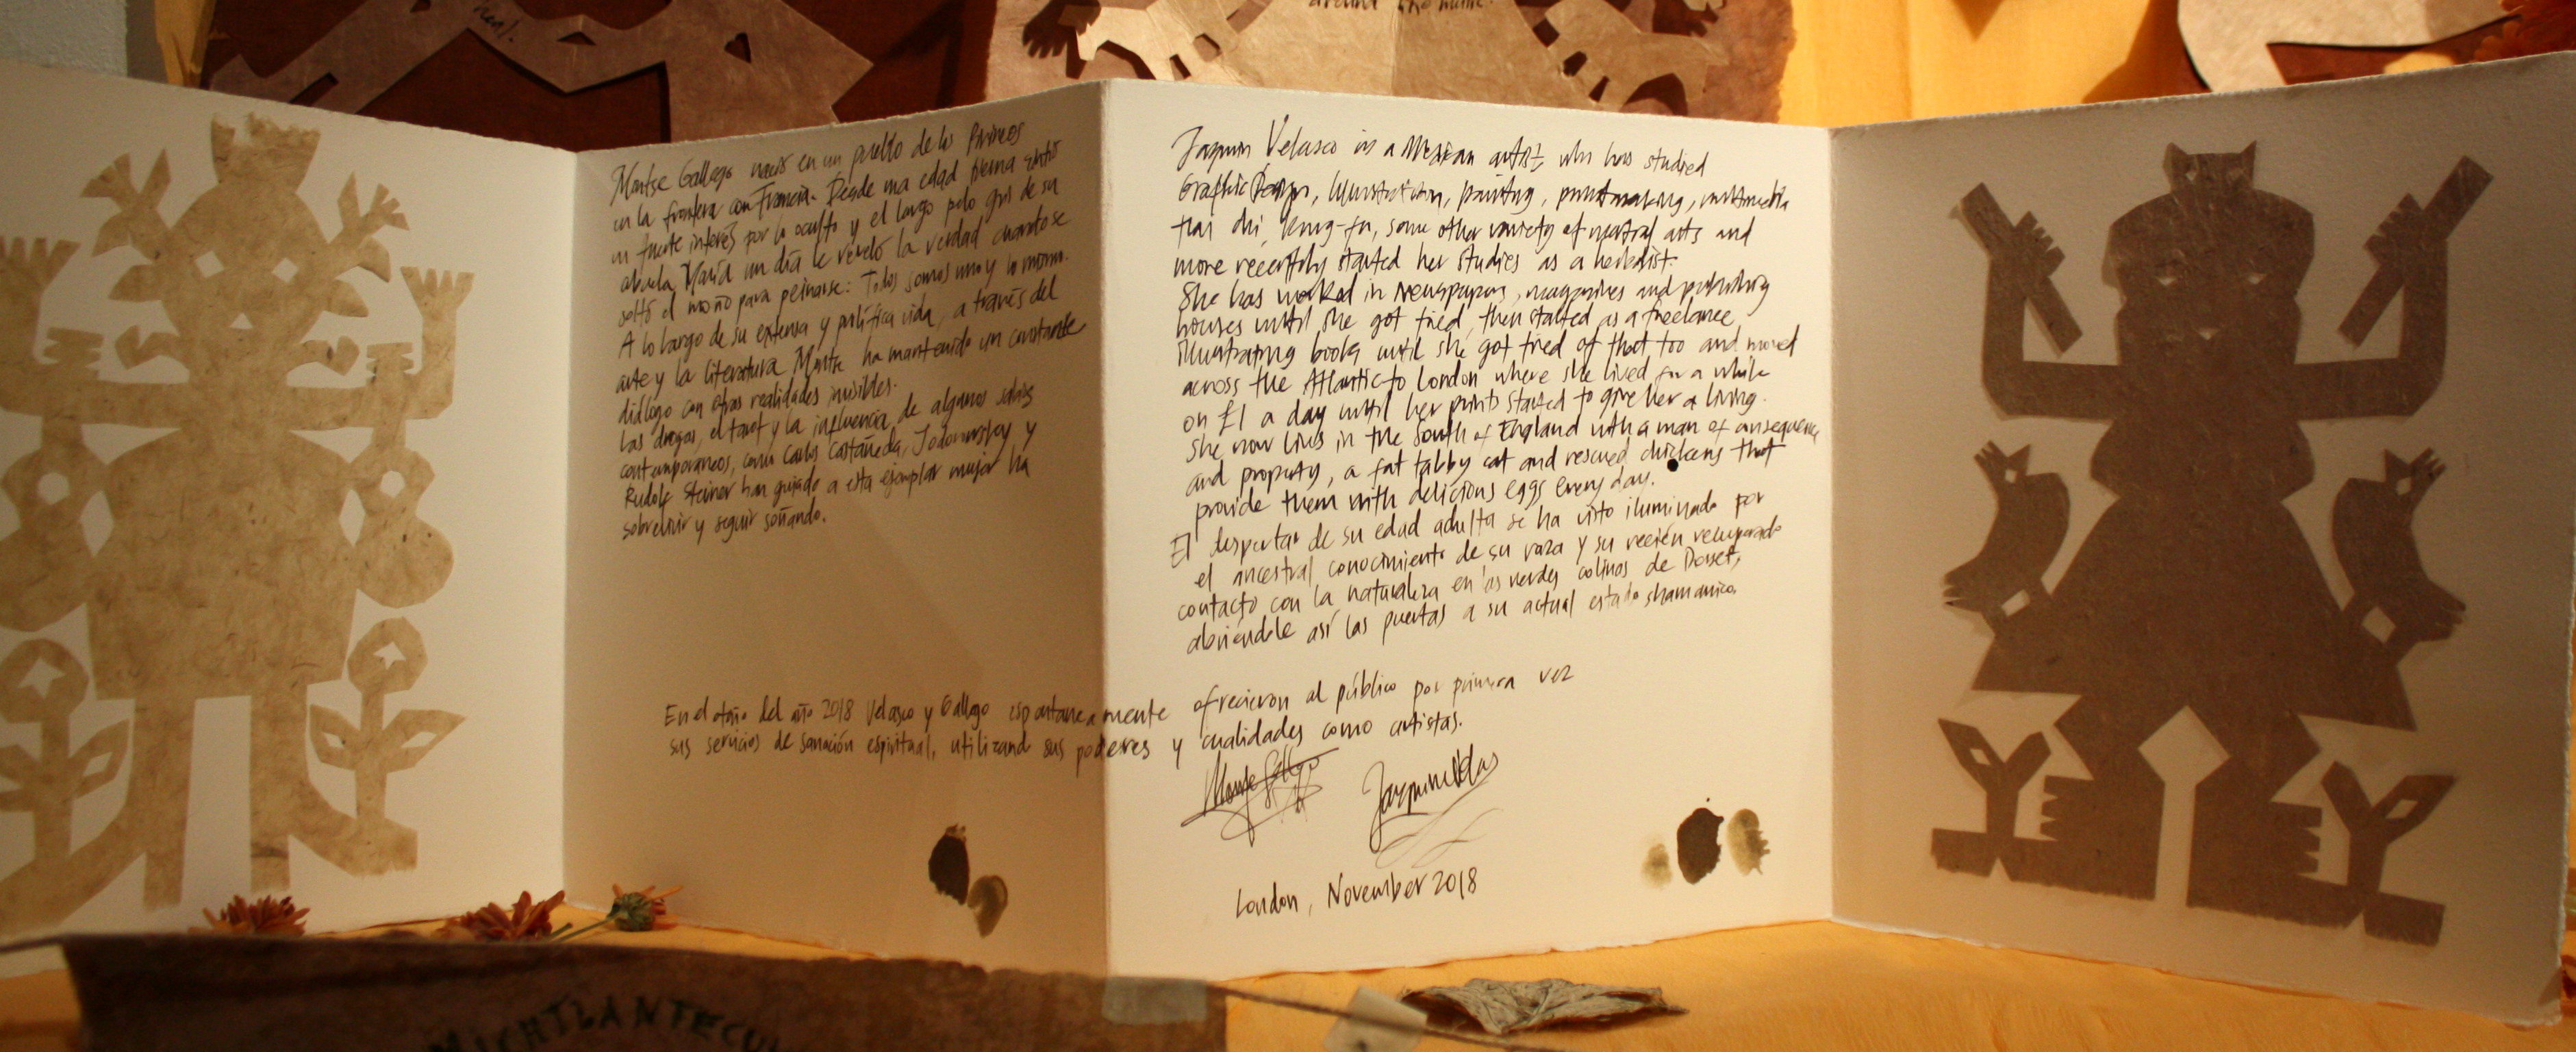 around the
Montse Gallego nació en un pueblo de los Pirineos
en la frontera con Francia. Desde una edad tierna sintió
un fuerte interés por lo oculto y el largo pelo gris de su
abuela María un día le reveló la verdad cuando se
soltó el moño para peinarse: Todos somos uno y lo mismo.
A lo largo de su extensa y prolífica vida, a través del
arte y la literatura Montse ha mantenido un constante
diálogo con otras realidades invisibles.
Las drogas, el tarot y la influencia de algunos sabios
contemporáneos, como Carlos Castañeda, Jodorowsky y
Rudolf Steiner han guiado a esta ejemplar mujer ha
sobrevivir y seguir soñando.
Jazmín Velasco is a Mexican artist, who has studied
Graphic Design, Illustration, painting, printmaking, multimedia
tai chi, kung-fu, some other variety of martial arts and
more recently started her studies as a herbalist.
She has worked in Newspapers, magazines and publishing
houses until she got tired, then started as a freelance
illustrating books until she got tired of that too and moved
across the Atlantic to London where she lived for a while
on £1 a day until her prints started to give her a living.
She now lives in the South of England with a man of consequence
and property, a fat tabby cat and rescued chickens that
provide them with delicious eggs every day.
El despertar de su edad adulta se ha visto iluminado por
el ancestral conocimiento de su raza y su recién recuperado
contacto con la naturaleza en las verdes colinas de Dorset,
abriéndole así las puertas a su actual estado shamanico.
En el otoño del año 2018 Velasco y Gallego espontaneamente ofrecieron al público por primera vez
sus servicios de sanación espiritual, utilizando sus poderes y cualidades como artistas.
Montse Gallego Jazmin Velasco
London, November 2018
MICHTLANTECU